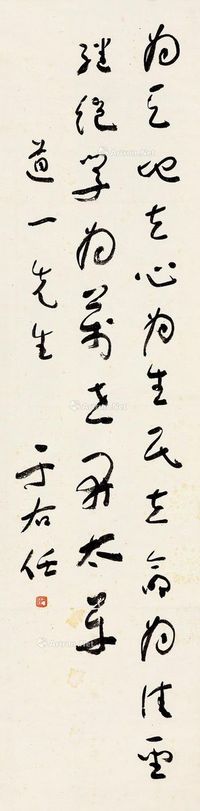 为天地立心为生民立命为往圣
继绝学为万世开太平
道一先生
于右任